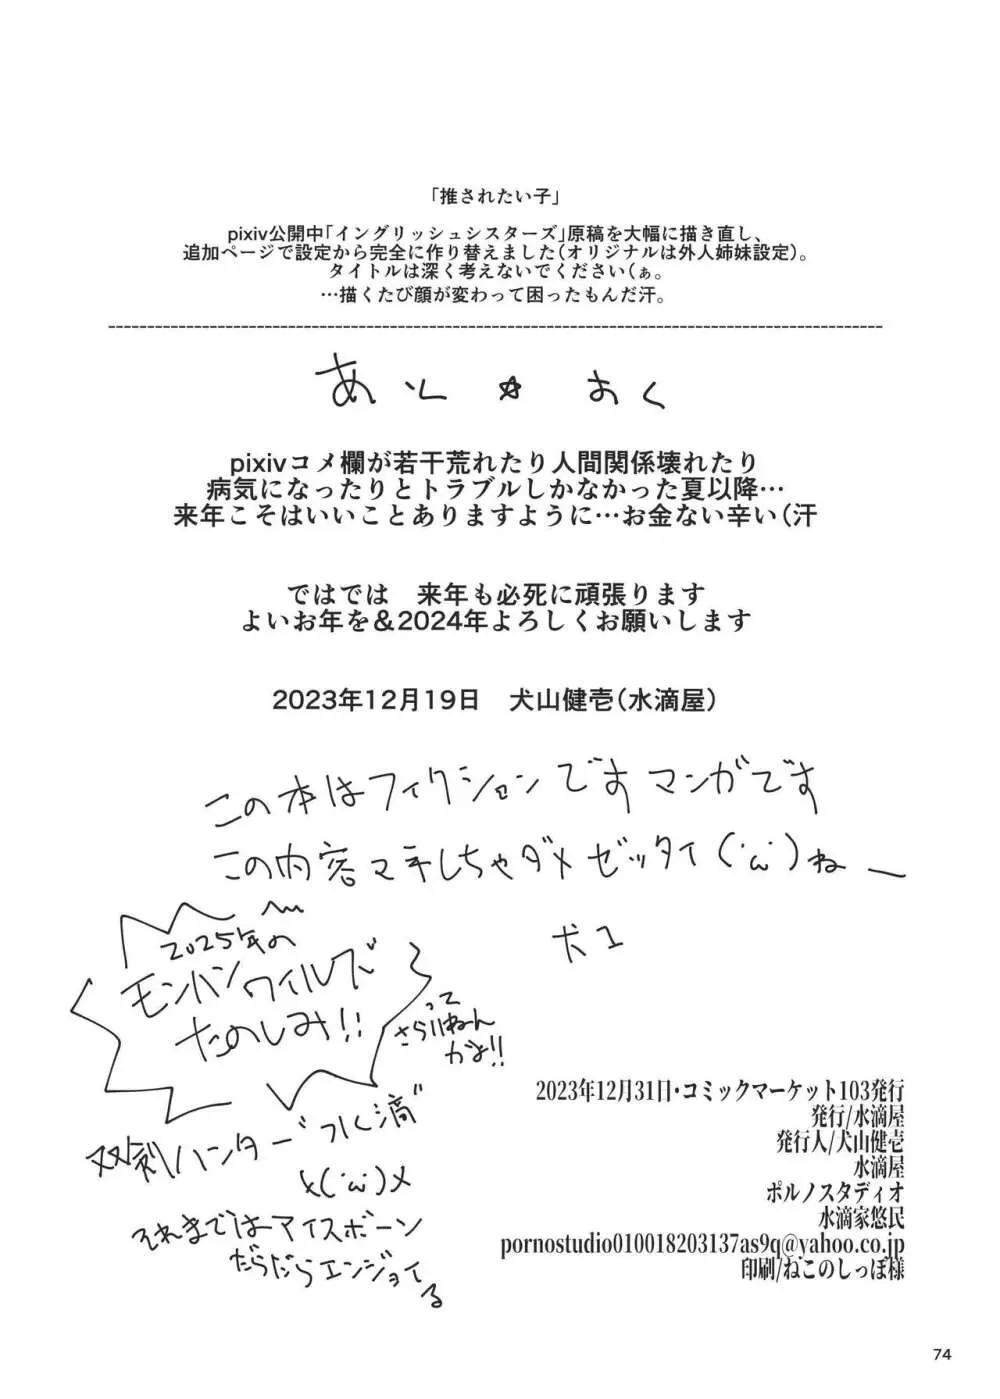 「推されたい子」
pixiv公開中「イングリッシュシスターズ」原稿を大幅に描き直し、
追加ページで設定から完全に作り替えました(オリジナルは外人姉妹設定)。
タイトルは深く考えないでください(ぁ。
…描くたび顔が変わって困ったもんだ汗。
あとがく
pixivコメ欄が若干荒れたり人間関係壊れたり
病気になったりとトラブルしかなかった夏以降…
来年こそはいいことありますように…お金ない辛い(汗
ではでは　来年も必死に頑張ります
よいお年を&2024年よろしくお願いします
2023年12月19日　犬山健壱(水滴屋)
この本はフィクションですマンガです
この内容マネしちゃダメゼッタイ(´ω`)ねー
犬1
2025年の
モンハンワイルズ
たのしみ!!
って
さらいねん
かよ!!
双剣ハンター"つI<滴"
メ(´ω`)メ
それまではアイスボーン
だらだらエンジョイ
る
2023年12月31日・コミックマーケット103発行
発行/水滴屋
発行人/犬山健壱
水滴屋
ポルノスタディオ
水滴家悠民
pornostudio010018203137as9q@yahoo.co.jp
印刷/ねこのしっぽ様
74